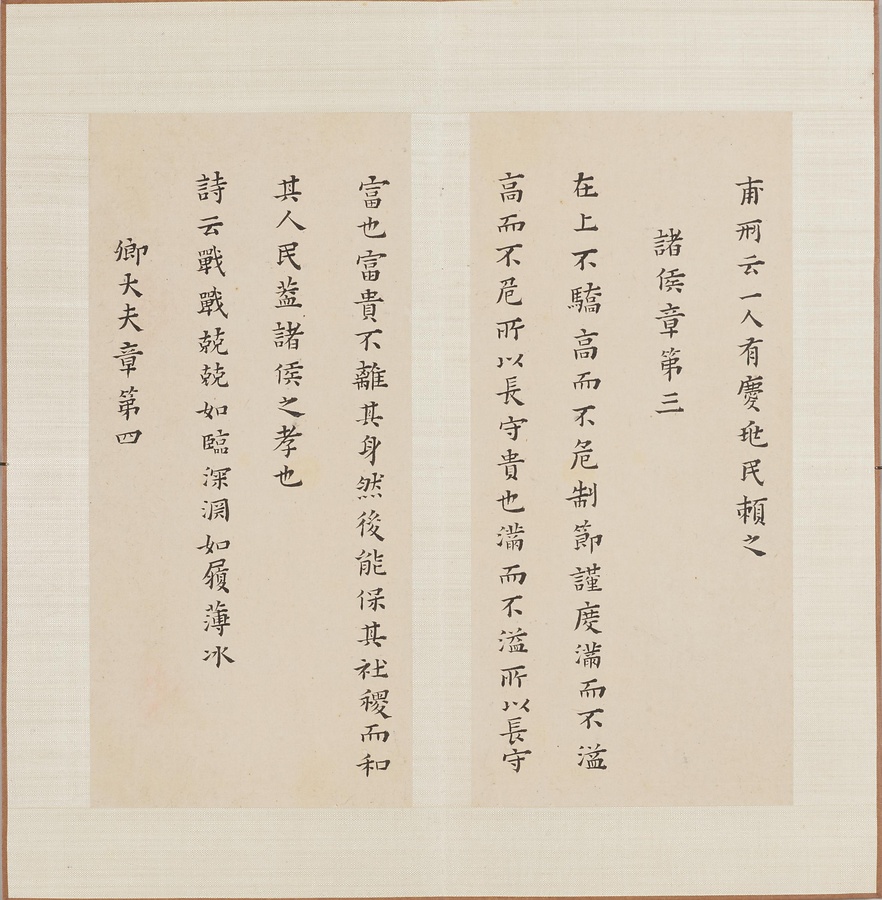 甫刑云一人有慶兆民賴之
諸侯章第三
在上不驕高而不危制節謹度滿而不溢
高而不危所以長守貴也滿而不溢所以長守
富也富貴不離其身然後能保其社稷而和
其人民葢諸侯之孝也
詩云戰戰兢兢如臨深淵如履薄冰
卿大夫章第四